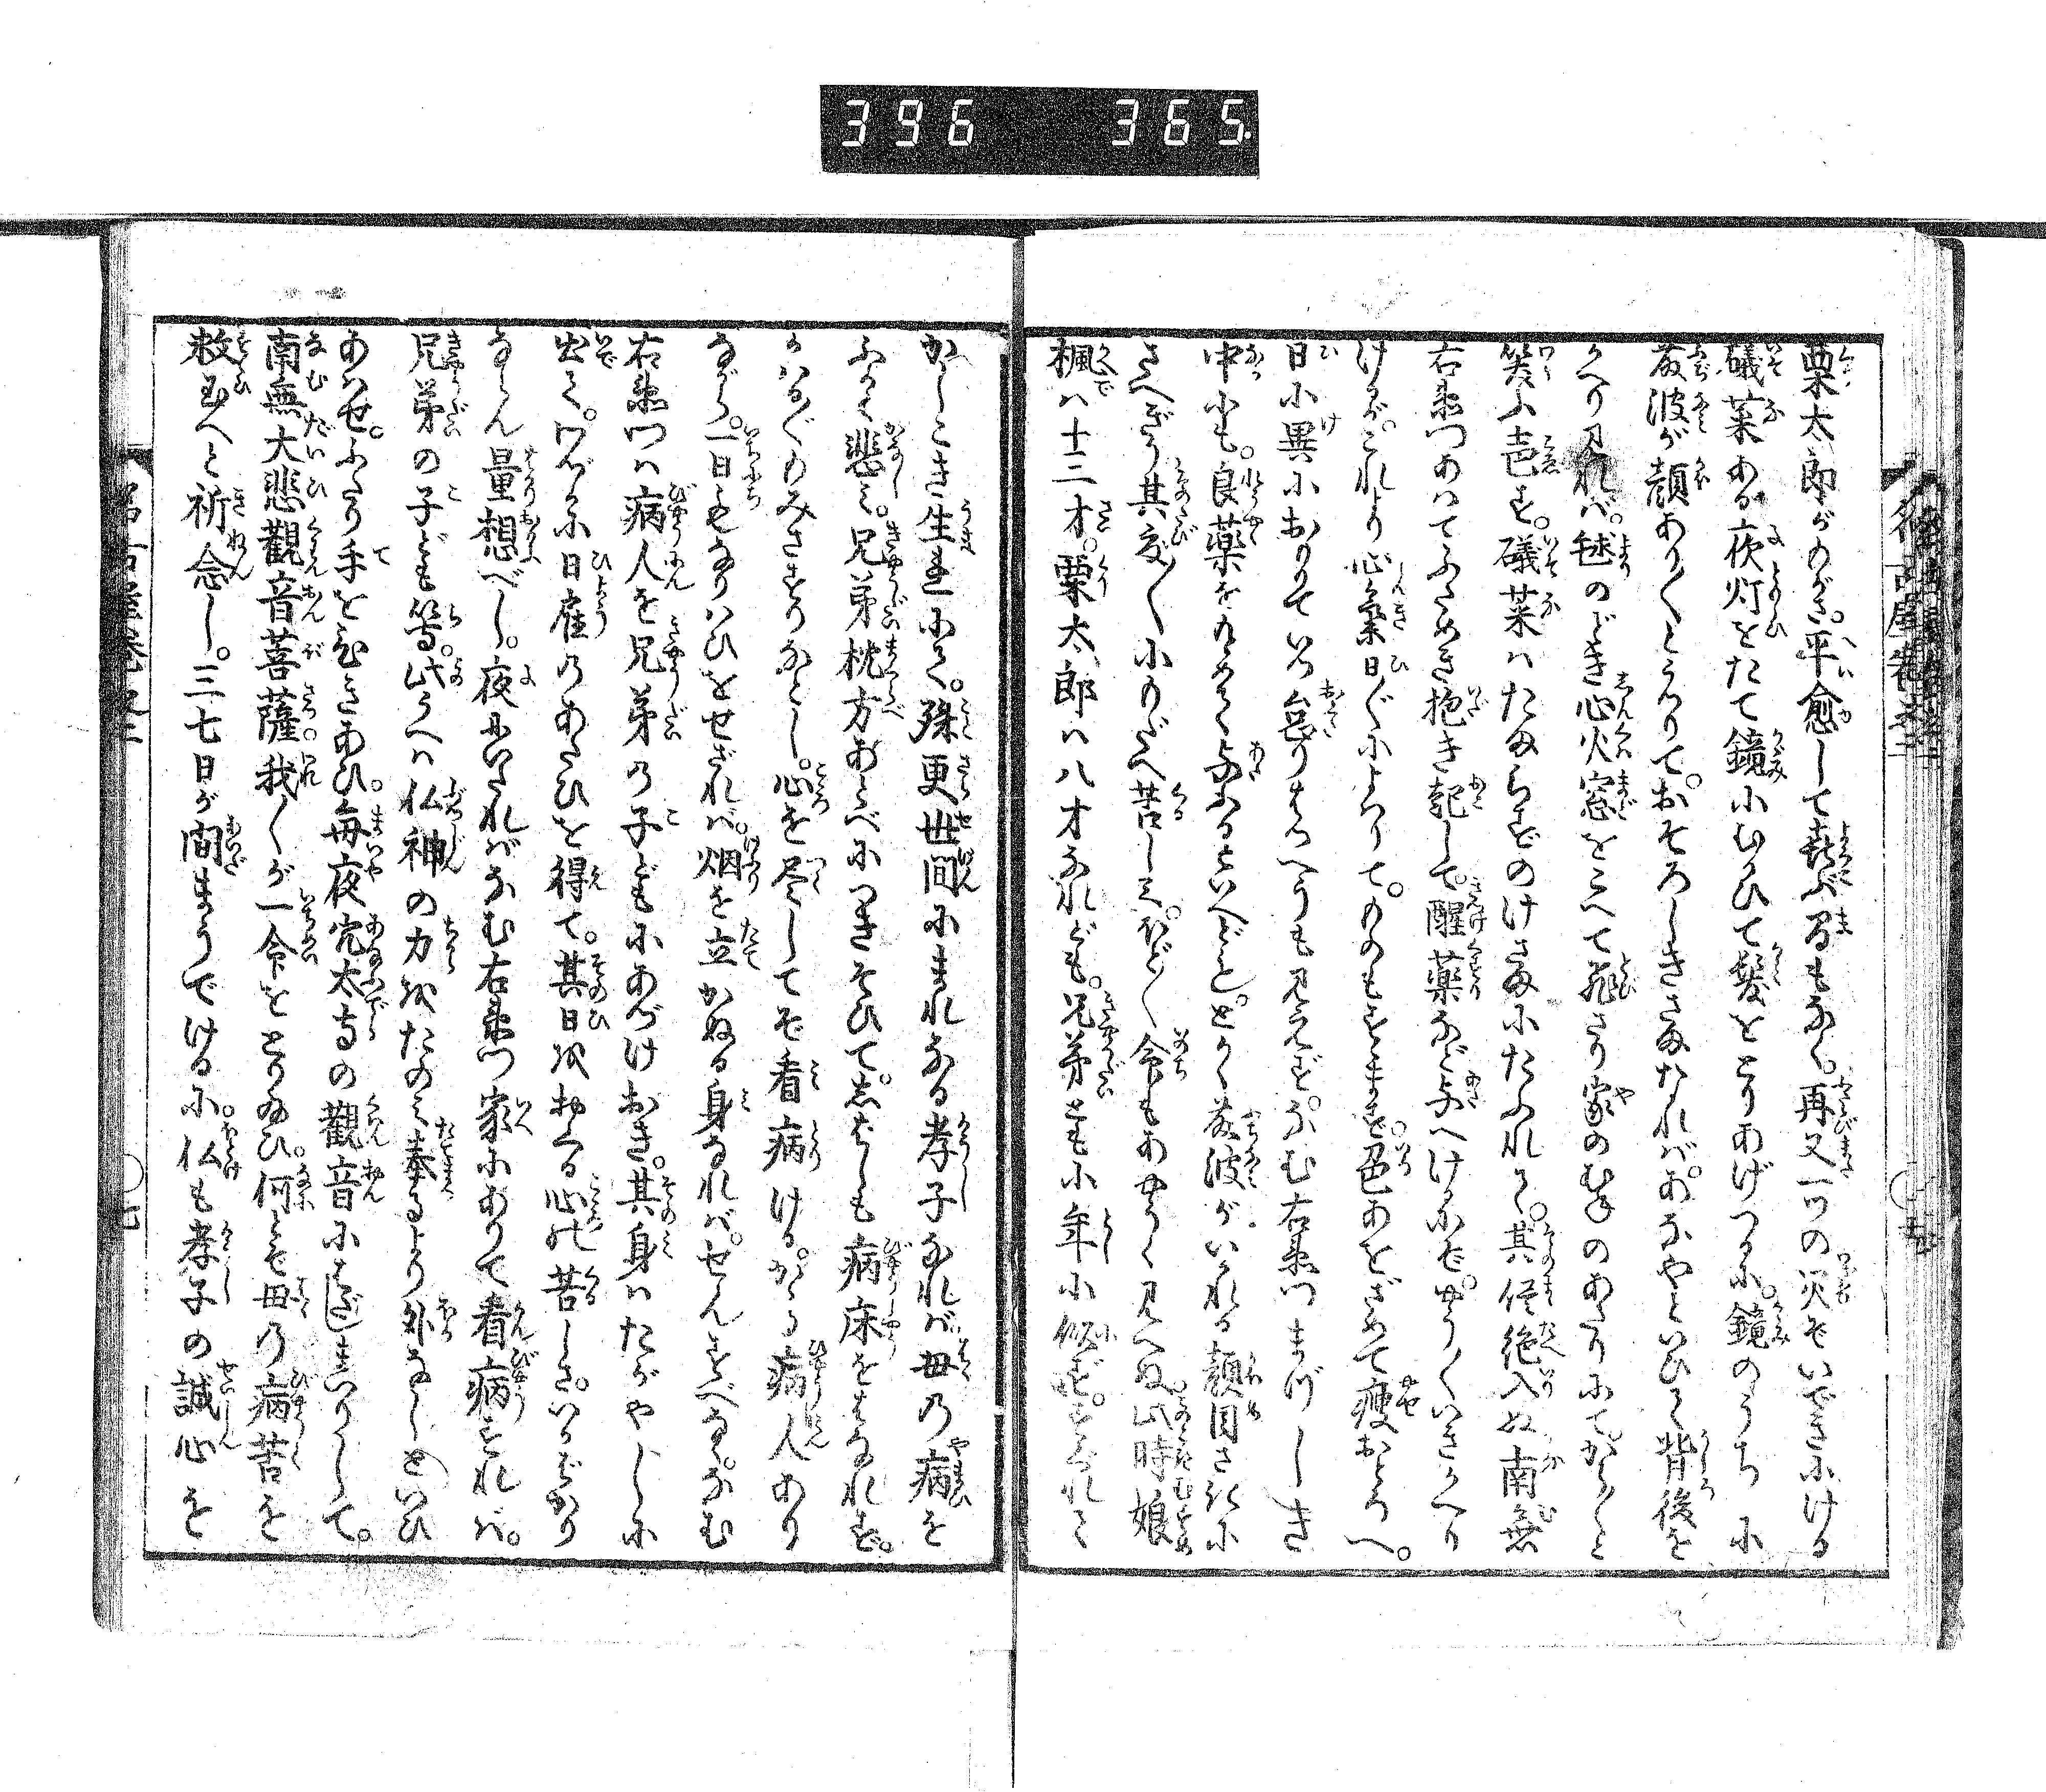 396 365.
栗太郎がわざ。平愈して喜ぶ間もなく。再又一つの災ぞいできにける
礒菜ある夜灯をたて鏡にむかひて髪をとりあげつるに。鏡のうちに
藤波が顔あり〳〵とうつりて。おそろしきさまなれば。あなやといひて背後を
かへり見れば。毬のごとき心火窓をこえて飛さり家のむねのあたりにてから〳〵と
笑ふ声す。礒菜はたまらずのけさまにたふれて。其侭絶入ぬ南無
右衛門あはてふためき抱き起して。醒薬など与へけるにぞ。やう〳〵いきかへり
けるが。これより心気日〻によわりて。ものもすゝまず色あをざめて痩おとろへ。
日に異におもりていつ怠りはつべうも見えず。なむ右衛門まづしき
中にも。良薬をもとめて与ふるといへども。とかく藤波がいかれる顔目さきに
さへぎり其度〳〵にもだへ苦しみ。ほど〳〵命もあやうく見へぬ此時娘
楓は十二才。栗太郎は八才なれども。兄弟とも小年に似ず。すぐれて
かしこき生れにて。殊更世間にまれなる孝子なれば母の病を
ふかく悲み。兄弟枕方あとべにつきそひて。しばしも病床をはなれず。
かはる〴〵もみさすりなどし。心を尽してぞ看病ける。かゝる病人あり
ながら。一日もなりはひをせざれば。烟を立かぬる身なれば。せんすべなく。なむ
右衛門は病人を兄弟の子どもにあづけおき。其身はたがやしに
出て。わづかに日雇のあたひを得て。其日をおくる心の苦しさ。いかばかり
ならん量想べし。夜にいたればなむ右衛門家にありて看病すれば。
兄弟の子ども等。此うへは仏神の力をたのみ奉るより外なしといひ
あはせ。ふたり手をひきあひ。毎夜穴太寺の觀音にはだしまいりして。
南無大悲觀音菩薩我〳〵が一命をとり給ひ。何とぞ母の病苦を
救玉へと祈念し。三七日が間まうでけるに。仏も孝子の誠心を
七